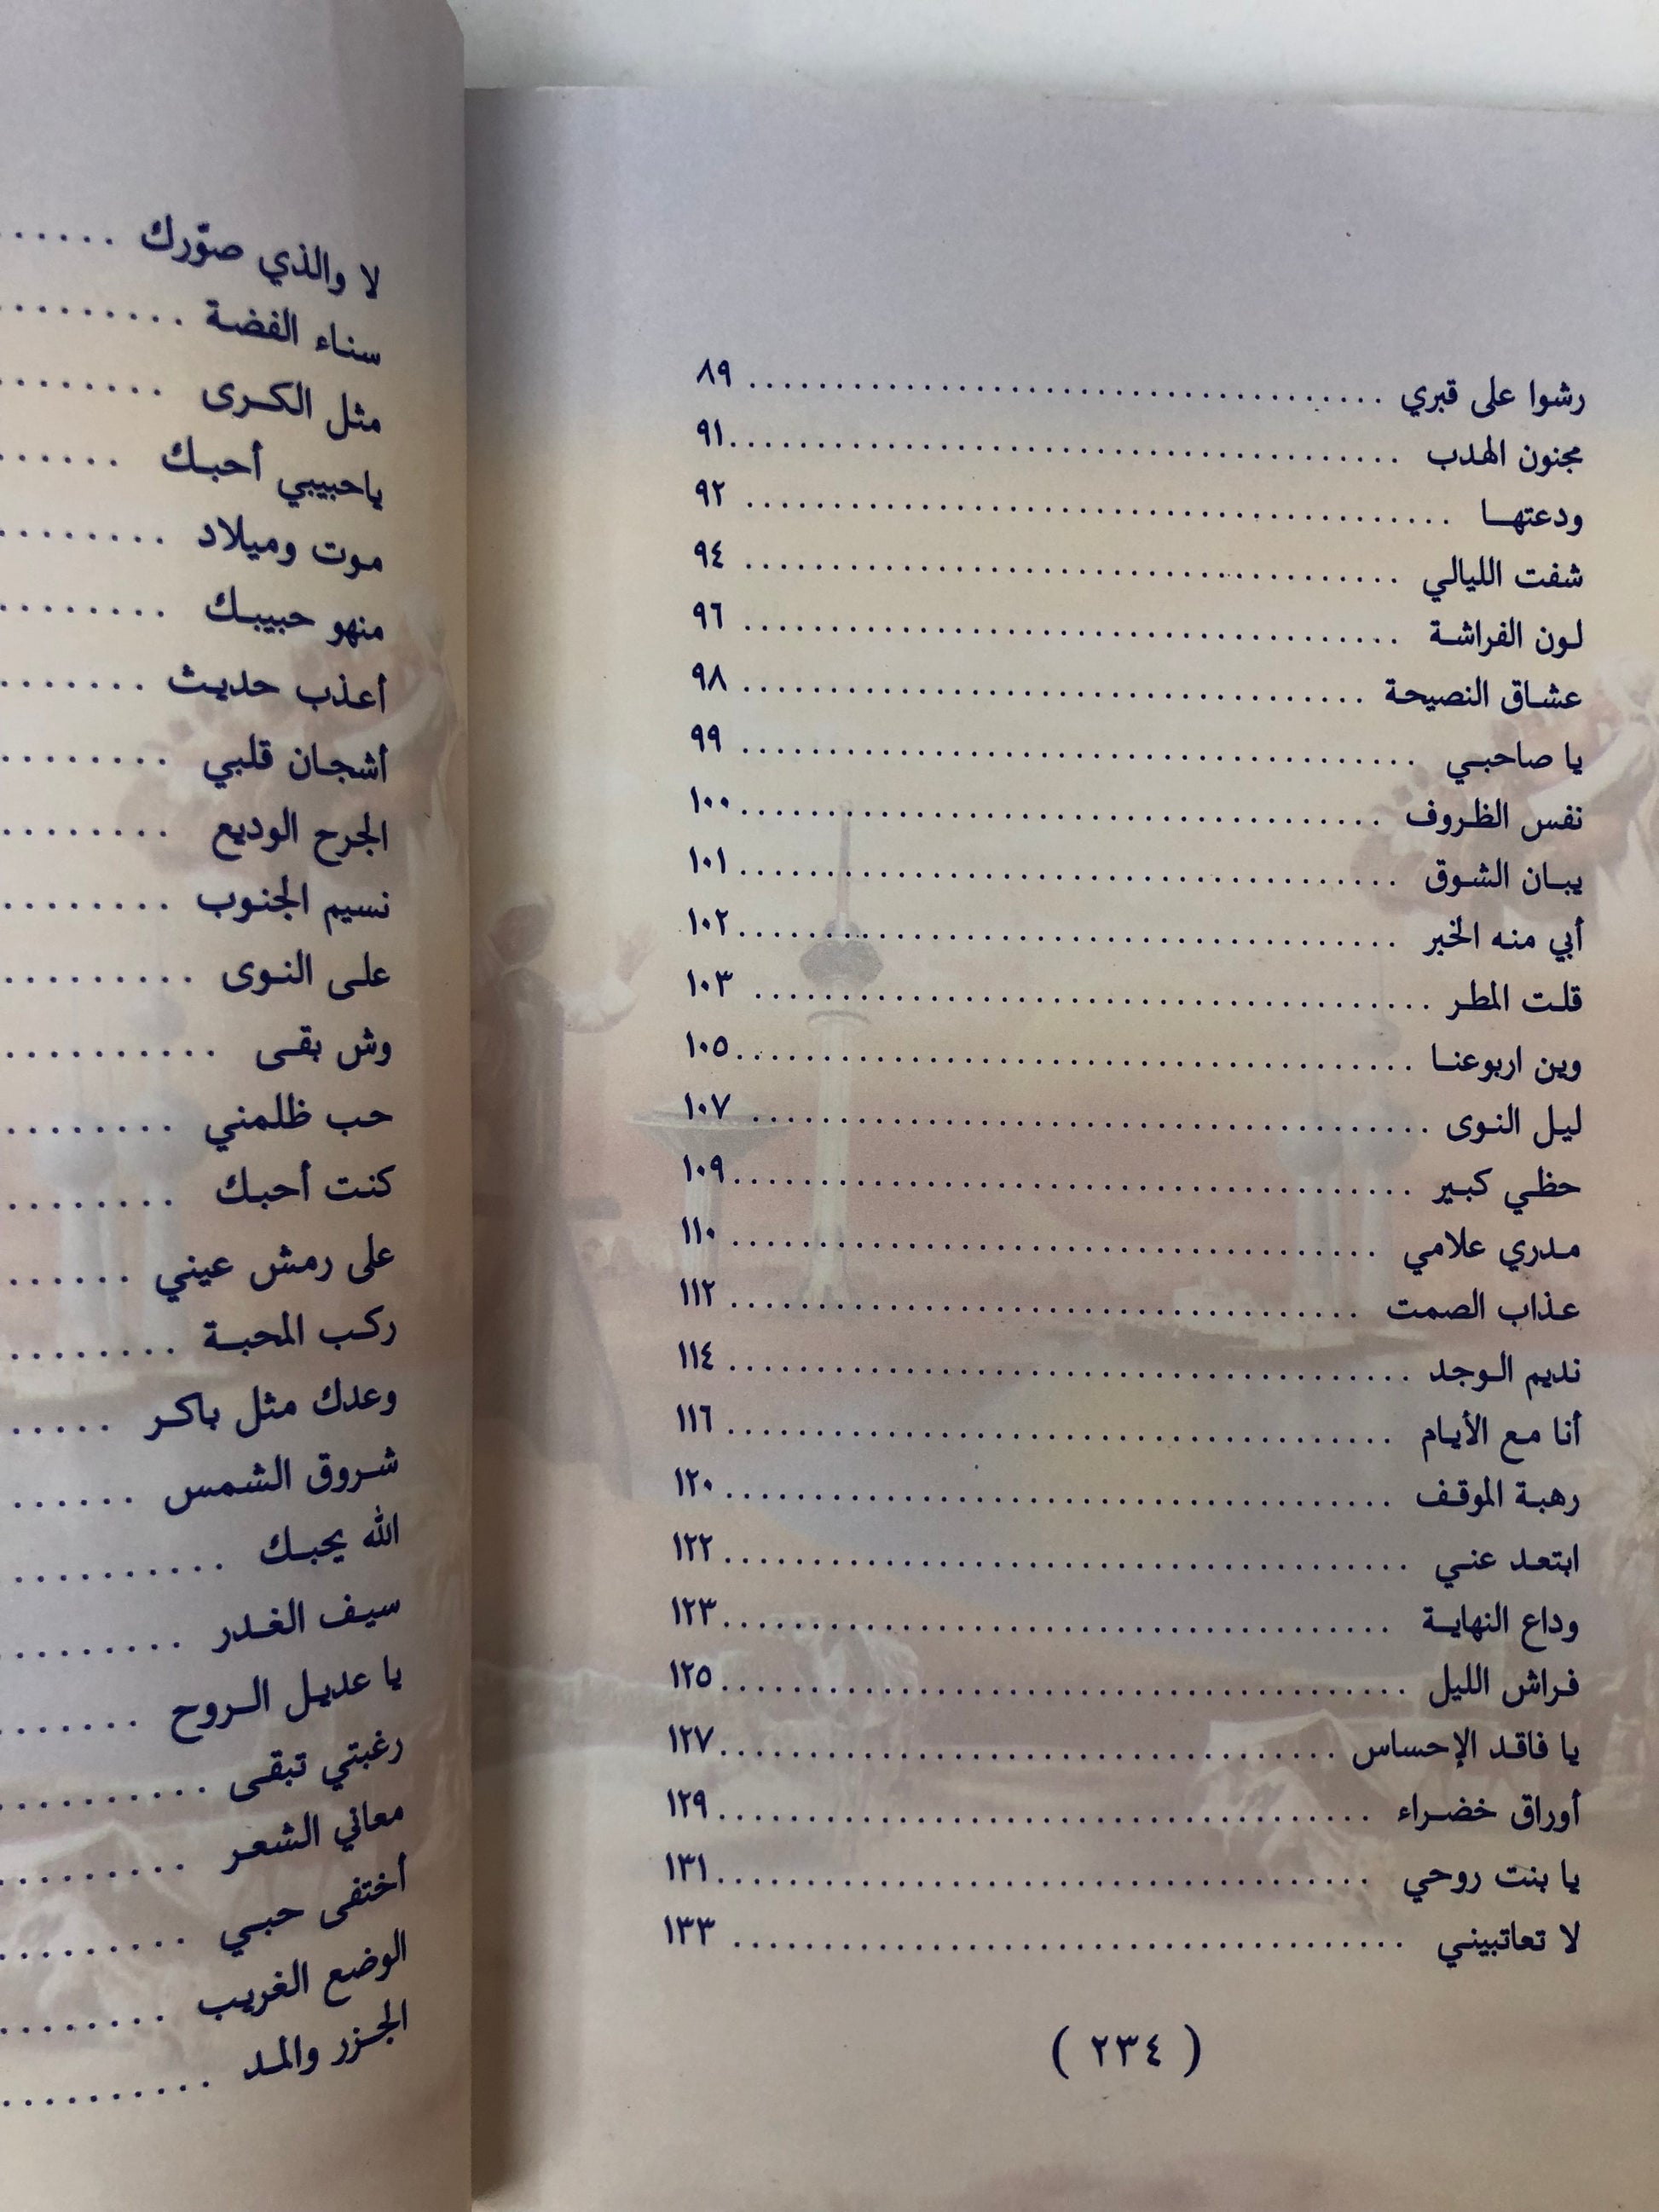 رشوا على قبري ........................................ ٨٩
مجنون الهدب ........................................ ٩١
ودعتهـــا ........................................ ٩٢
شفت الليالي ........................................ ٩٤
لـون الفراشـة ........................................ ٩٦
عشـاق النصيحـة ........................................ ٩٨
يا صاحبـي ........................................ ٩٩
نفس الظـروف ........................................ ١٠٠
يبـان الشـوق ........................................ ١٠١
أبي منـه الخبر ........................................ ١٠٢
قلـت المطـر ........................................ ١٠٣
وين اربوعنـا ........................................ ١٠٥
ليـل النـوى ........................................ ١٠٧
حظـي كبـير ........................................ ١٠٩
مـدري علامي ........................................ ١١٠
عـذاب الصمت ........................................ ١١٢
نديم الـوجد ........................................ ١١٤
أنا مـع الأيـام ........................................ ١١٦
رهبـة الموقـف ........................................ ١٢٠
ابتعـد عنـي ........................................ ١٢٢
وداع النهايـة ........................................ ١٢٣
فـراش الليل ........................................ ١٢٥
يا فاقـد الإحساس ........................................ ١٢٧
أوراق خضـراء ........................................ ١٢٩
يا بنت روحي ........................................ ١٣١
لا تعاتبينـي ........................................ ١٣٣
( ٢٣٤ )
لا والذي صوّرك ......
سنـاء الفضـة .........
مثل الكـرى ........
ياحبيبي أحبـك ......
مـوت وميلاد ........
منهو حبيبـك ........
أعـذب حديـث .......
أشجـان قلبي ........
الجرح الوديع ........
نسيم الجنـوب ........
علـى النـوى .........
وش بقـى ..........
حـب ظلمني ........
كنـت أحبـك ........
على رمش عيني ......
ركـب المحبـة ........
وعدك مثل باكـر .....
شـروق الشمس ......
الله يحبـك ..........
سيـف الغـدر ........
يا عديـل الـروح .......
رغبتي تبقـى .........
معاني الشعـر .........
أختفى حبـي .........
الوضع الغريـب ........
الجـزر والمـد ..........